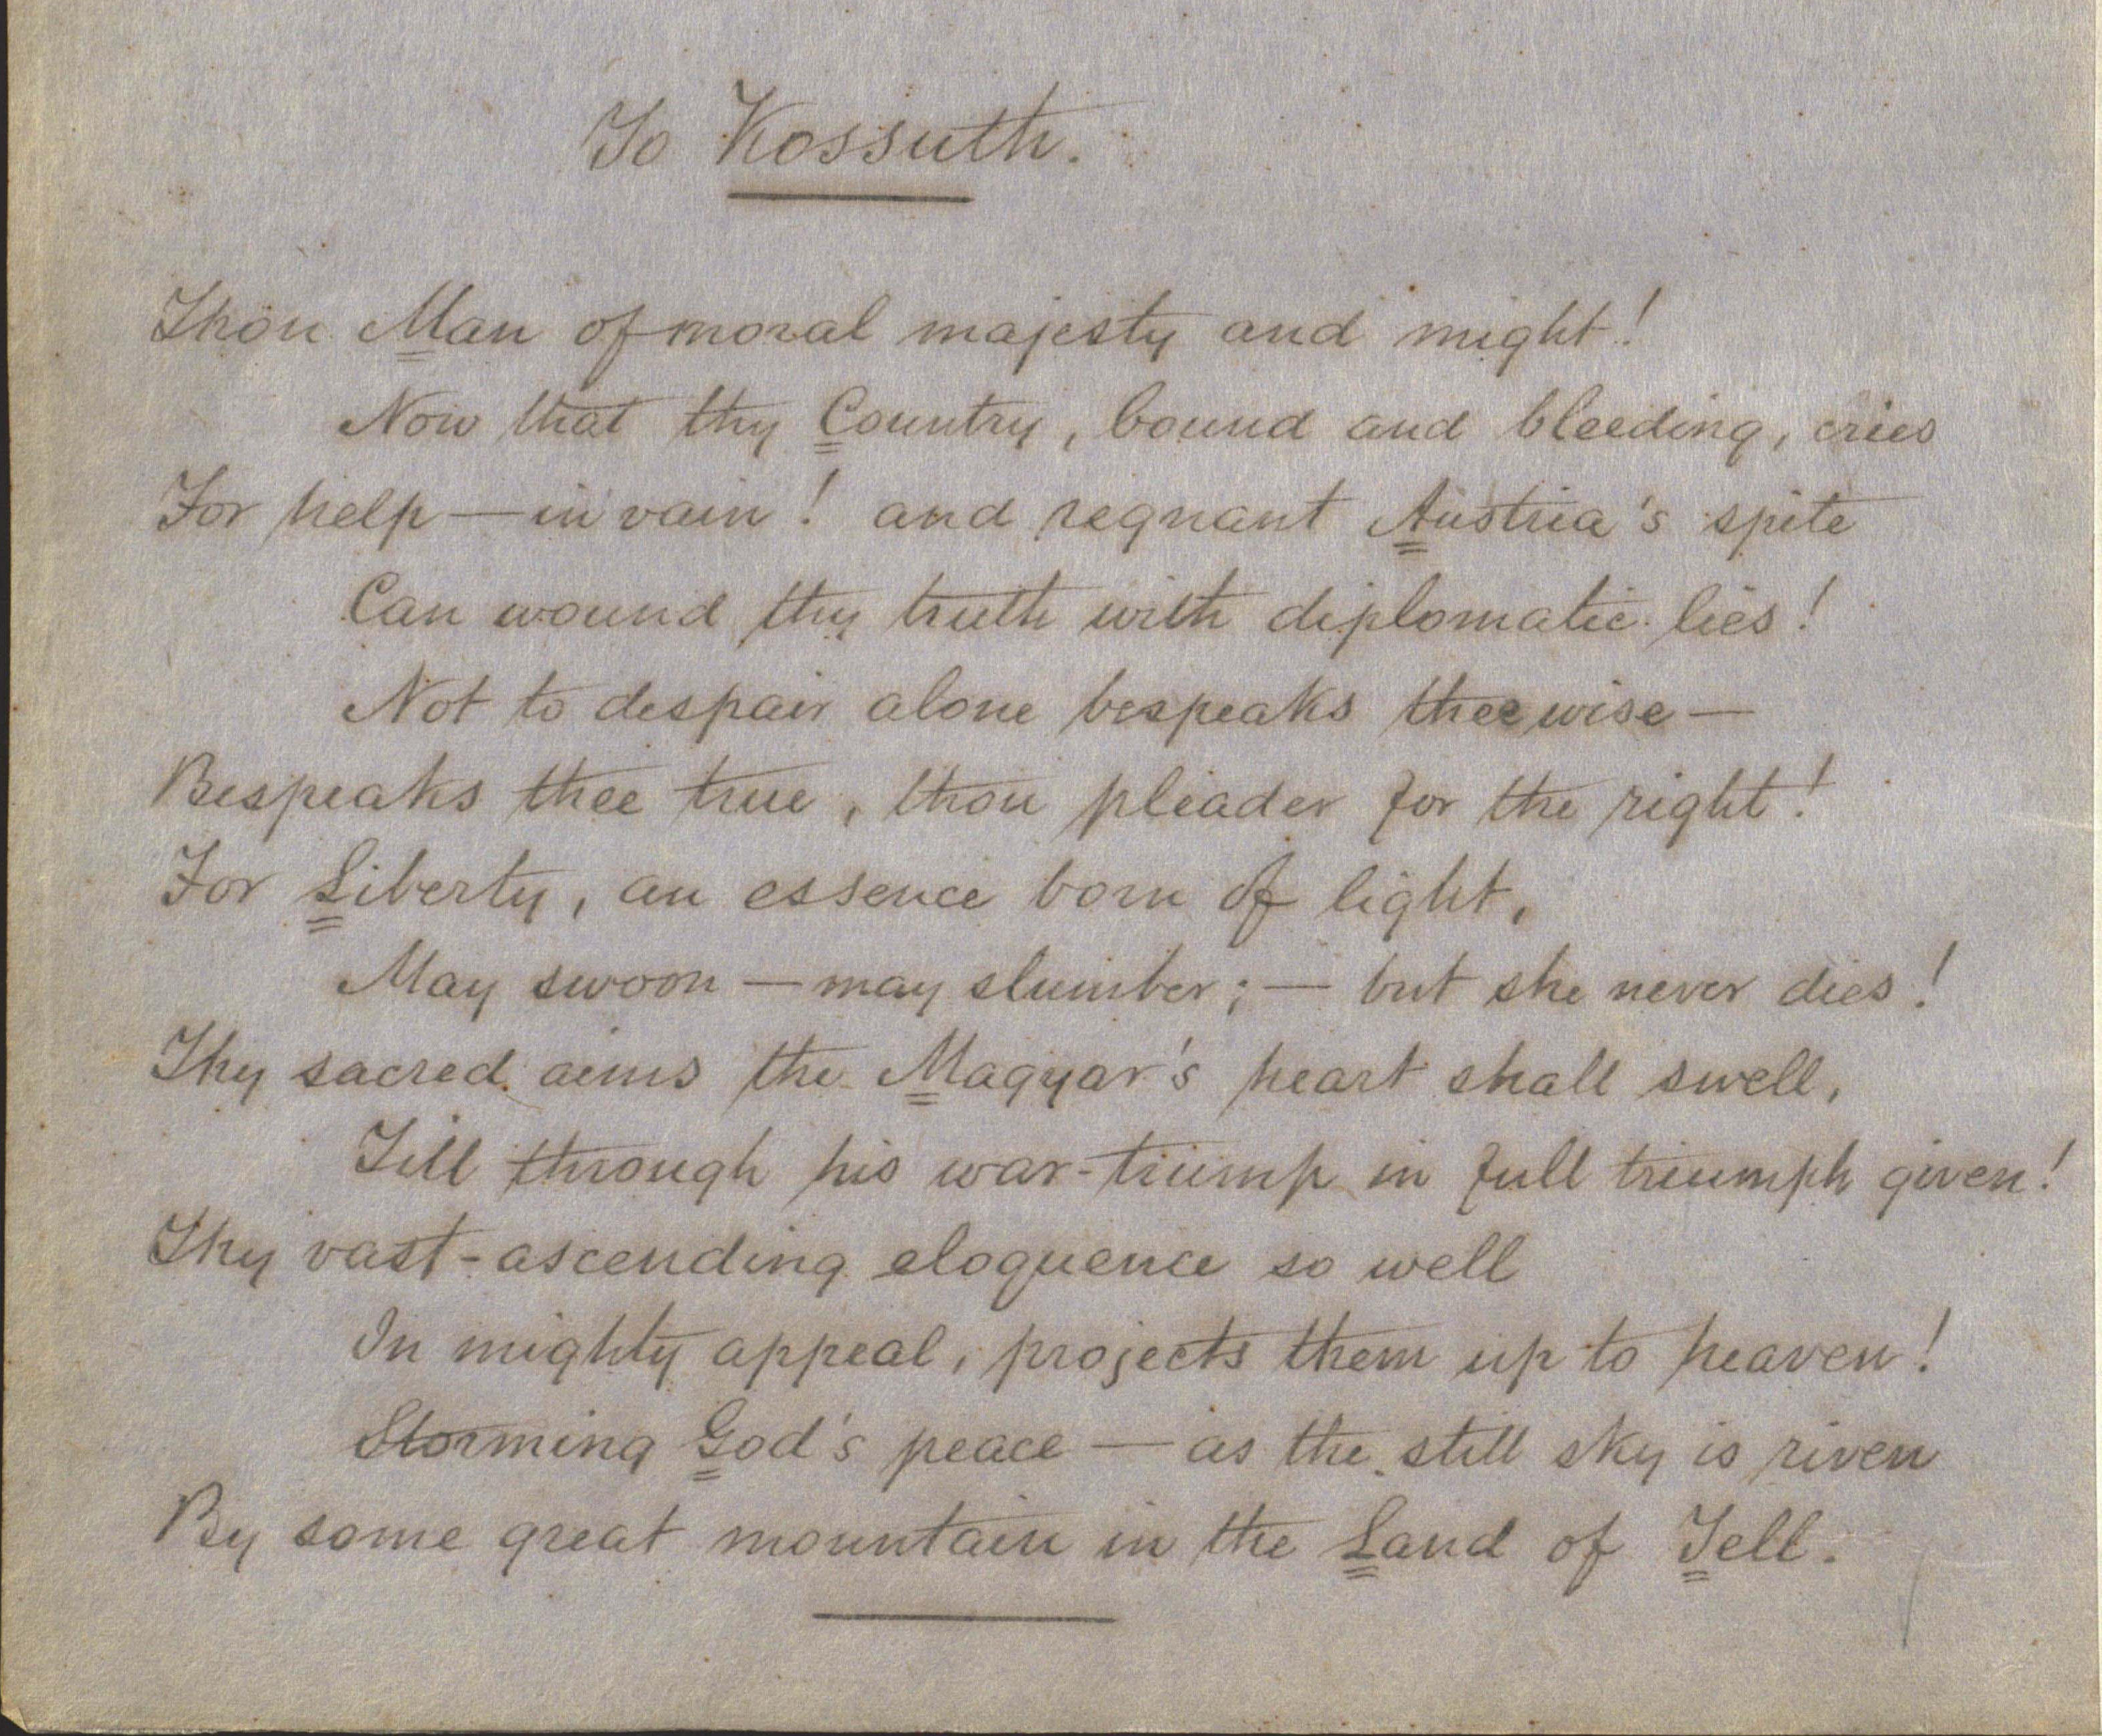 To Kossuth.
Thou Man of moral majesty and might!
Now that thy Country, bound and bleeding, cries
For help — in vain! and regnant Austria's spite
Can wound thy truth with diplomatic lies!
Not to despair alone bespeaks thee wise —
Bespeaks thee true, thou pleader for the right!
For Liberty, an essence born of light,
May swoon — may slumber; — but she never dies!
Thy sacred aims the Magyar's heart shall swell,
Till through his war-trump in full triumph given!
Thy vast-ascending eloquence so well
In mighty appeal, projects them up to heaven!
Storming God's peace — as the still sky is riven
By some great mountain in the Land of Tell.